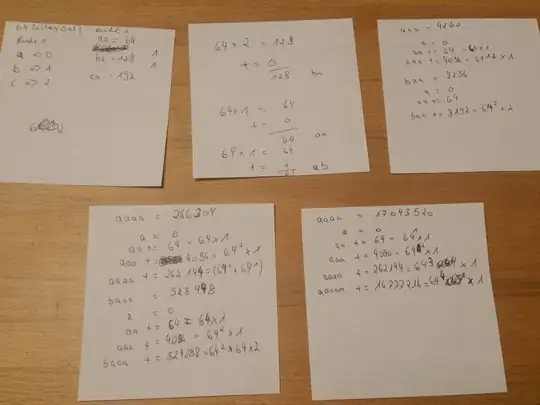 Runde 1
a => 0
b => 1
c => 2
aa = 64
ba = 128 1
ca = 192 1
64 x 2 = 128
+ = 0
128 ba
64 x 1 = 64
+ = 0
64 aa
64 x 1 = 64
+ = 1
65 ab
aaa = 4160
a = 0
aa += 64 = 64 x 1
baa = 8256
a = 0
aa += 64
baa += 8192 = 64² x 2
aaaa = 266304
a = 0
aa += 64 = 64 x 1
aaa += 4096 = 64² x 1
aaaa += 262144 =
baaa = 528448
a = 0
aa += 64 = 64 x 1
aaa += 4096 = 64² x 1
baaa += 524288 = 64² x 64 x 2
aaaaa = 17043520
a = 0
aa += 64 = 64 x 1
aaa += 4096 = 64² x 1
aaaa += 262144 = 64³ x 1
aaaaa += 16777216 = 64⁴ x 1